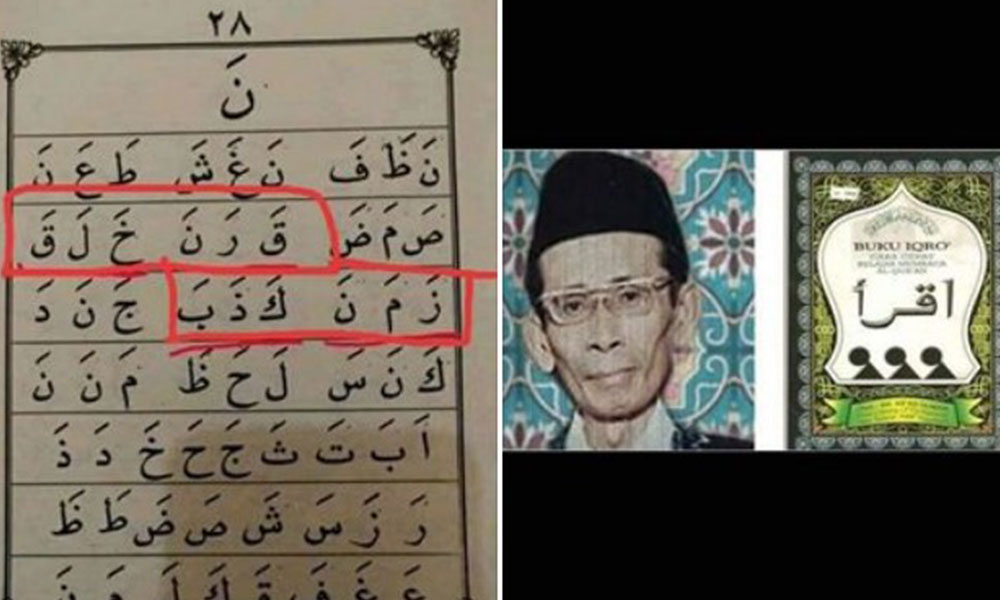 ٢٨
نَ
نَ ظَ فَ نَ غَ شَ طَ عَ نَ
صَ مَ ضَ قَ رَ نَ خَ لَ قَ
زَ مَ نَ كَ ذَ بَ جَ نَ دَ
كَ نَ سَ لَ حَ ظَ مَ نَ نَ
اَ بَ تَ ثَ جَ حَ خَ دَ ذَ
رَ زَ سَ شَ صَ ضَ طَ ظَ
عَ غَ فَ قَ كَ لَ مَ نَ
BUKU IQRO'
CARA CEPAT
BELAJAR MEMBACA
AL-QUR'AN
اقرأ